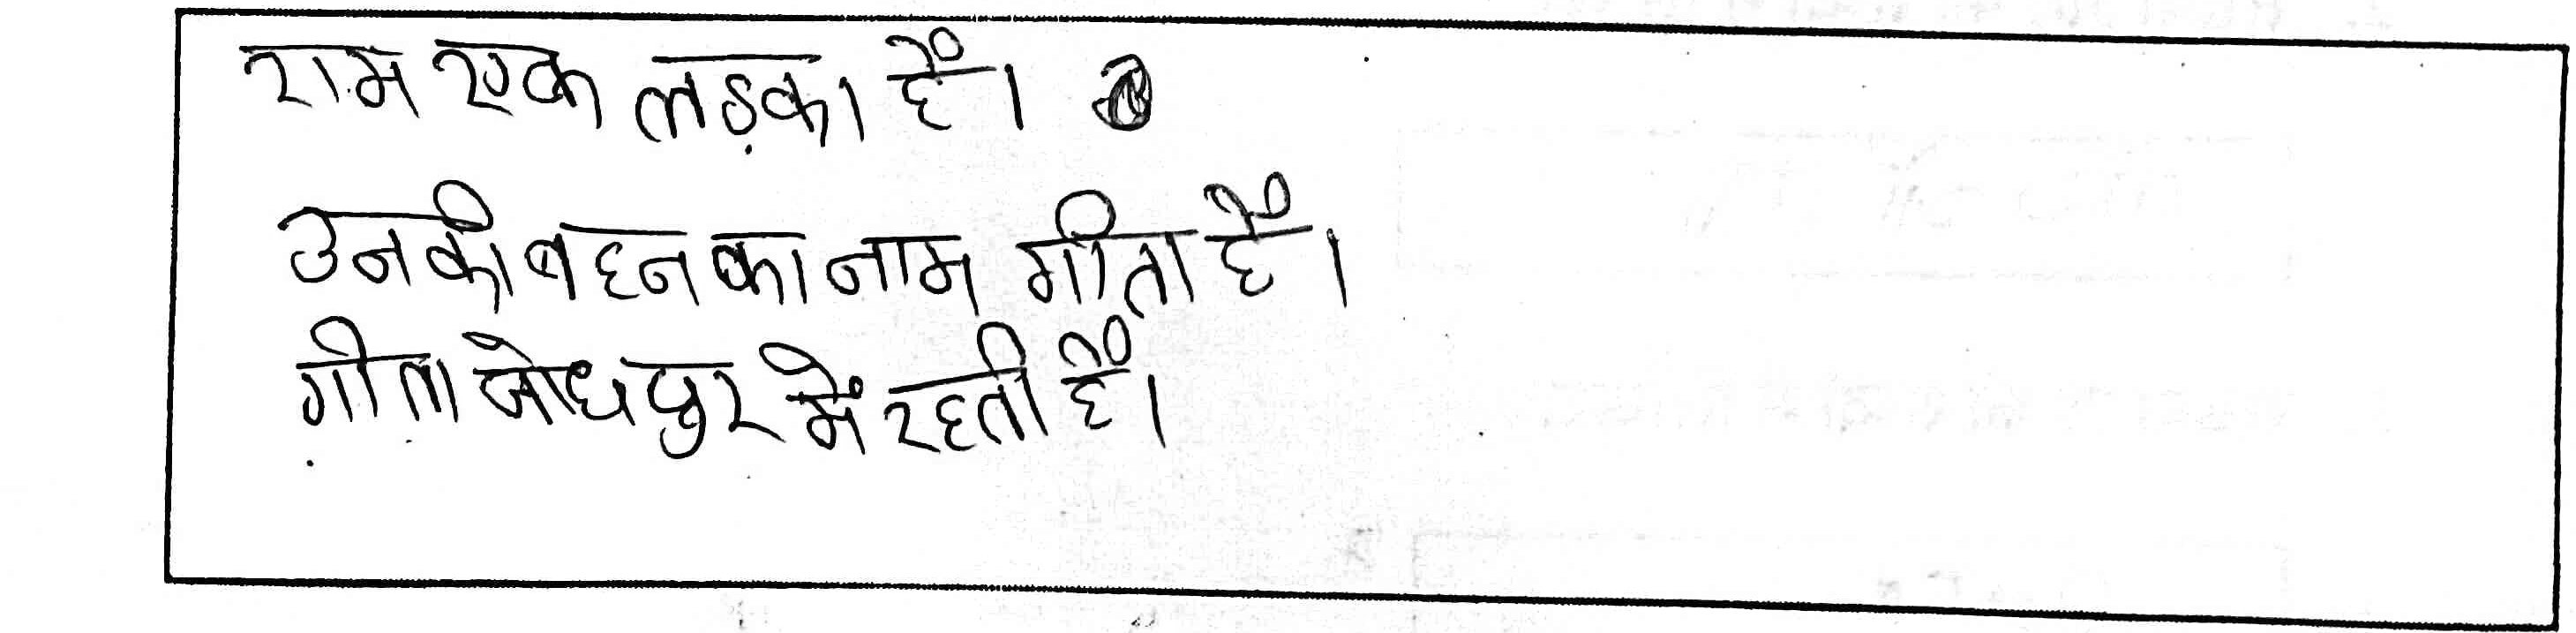 राम एक लड़का हैं।
उनकी बहन का नाम गीता हैं।
गीता जोधपुर में रहती हैं।